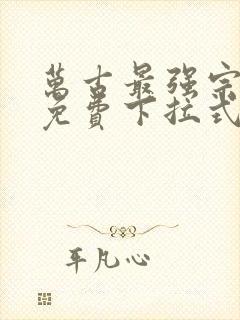 萬古最强宗
免費下拉式
平凡心